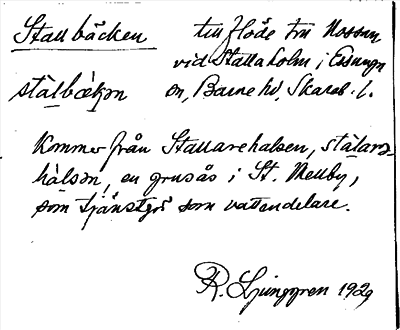 Stallbäcken tillflöde till Nossan
vid Stallaholm i Essunga
stálbækɔn sn, Barne hd, Skarab. l.
Kommer från Stallarehalsen, stálarə-
hálsən, en grusås i St. Mellby,
som tjänstgör som vattendelare.
R. Ljunggren 1929